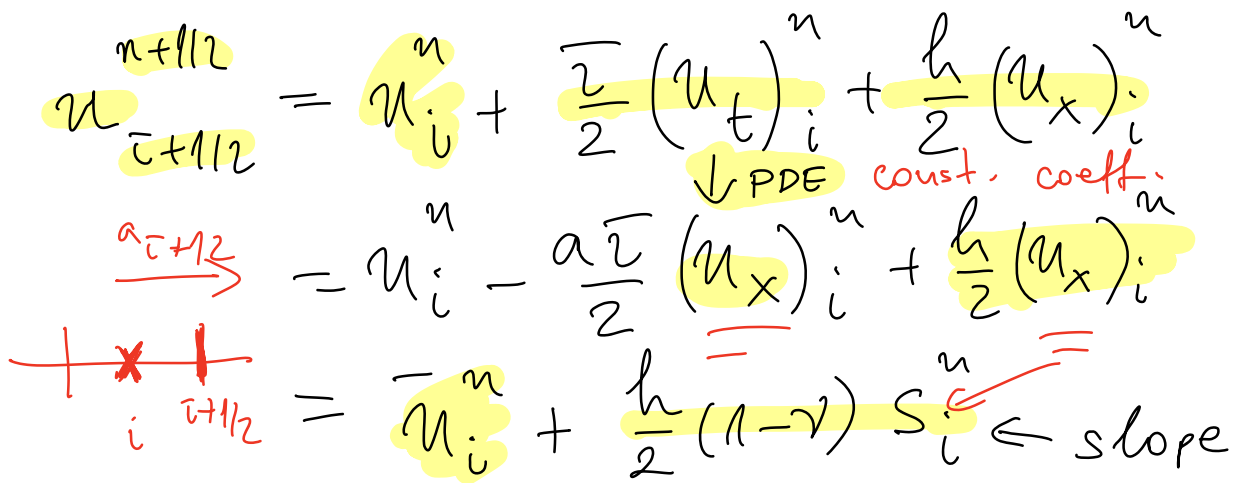 u^{n+1/2}_{i+1/2} = u_i^n + τ/2 (u_t)_i^n + h/2 (u_x)_i^n
↓ PDE const. coeff.
a_{i+1/2} → = u_i^n - aτ/2 (u_x)_i^n + h/2 (u_x)_i^n
i i+1/2 = ū_i^n + h/2 (1-ν) S_i^n ← slope